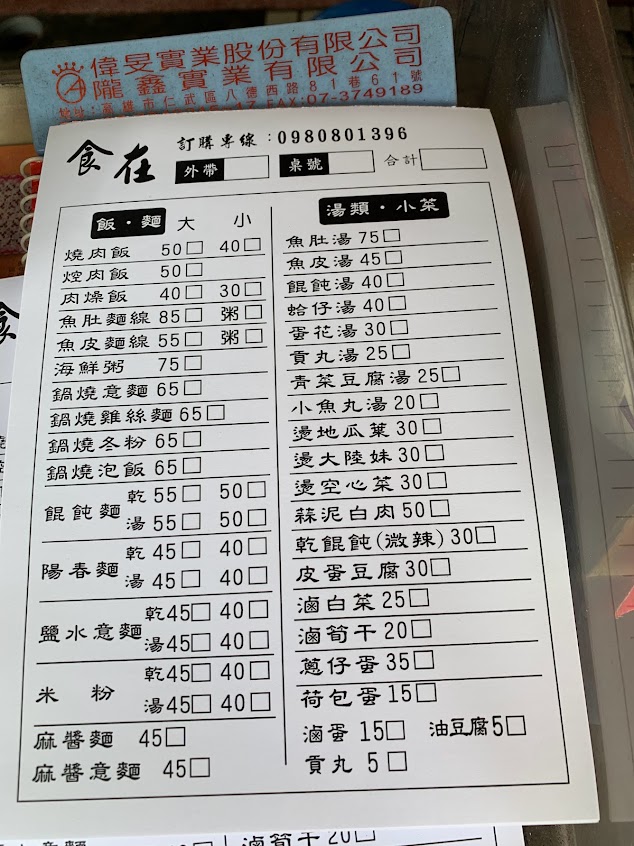 偉旻實業股份有限公司
隴鑫實業有限公司
地址:高雄市仁武區八德西路81巷61號
FAX:07-3749189
食在
訂購專線:0980801396
外帶 桌號 合計
飯·麵 大 小
燒肉飯 50□ 40□
焢肉飯 50□
肉燥飯 40□ 30□
魚肚麵線 85□ 粥□
魚皮麵線 55□ 粥□
海鮮粥 75□
鍋燒意麵 65□
鍋燒雞絲麵 65□
鍋燒冬粉 65□
鍋燒泡飯 65□
餛飩麵 乾 55□ 50□
湯 55□ 50□
陽春麵 乾 45□ 40□
湯 45□ 40□
鹽水意麵 乾45□ 40□
湯45□ 40□
米粉 乾45□ 40□
湯45□ 40□
麻醬麵 45□
麻醬意麵 45□
湯類·小菜
魚肚湯 75□
魚皮湯 45□
餛飩湯 40□
蛤仔湯 40□
蛋花湯 30□
貢丸湯 25□
青菜豆腐湯 25□
小魚丸湯 20□
燙地瓜葉 30□
燙大陸妹 30□
燙空心菜 30□
蒜泥白肉 50□
乾餛飩(微辣) 30□
皮蛋豆腐 30□
滷白菜 25□
滷筍干 20□
蔥仔蛋 35□
荷包蛋 15□
滷蛋 15□ 油豆腐 5□
貢丸 5□
滷筍干 20□